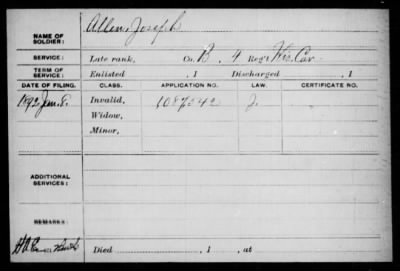 Allen, Joseph
NAME OF
SOLDIER:
SERVICE: Late rank, Co. B, 4 Reg't Wis. Cav.
TERM OF
SERVICE: Enlisted , 1 Discharged , 1
DATE OF FILING. CLASS. APPLICATION NO. LAW. CERTIFICATE NO.
1892, Jan. 8. Invalid, 1087542 J.
Widow,
Minor,
ADDITIONAL
SERVICES:
REMARKS:
Died , 1 , at